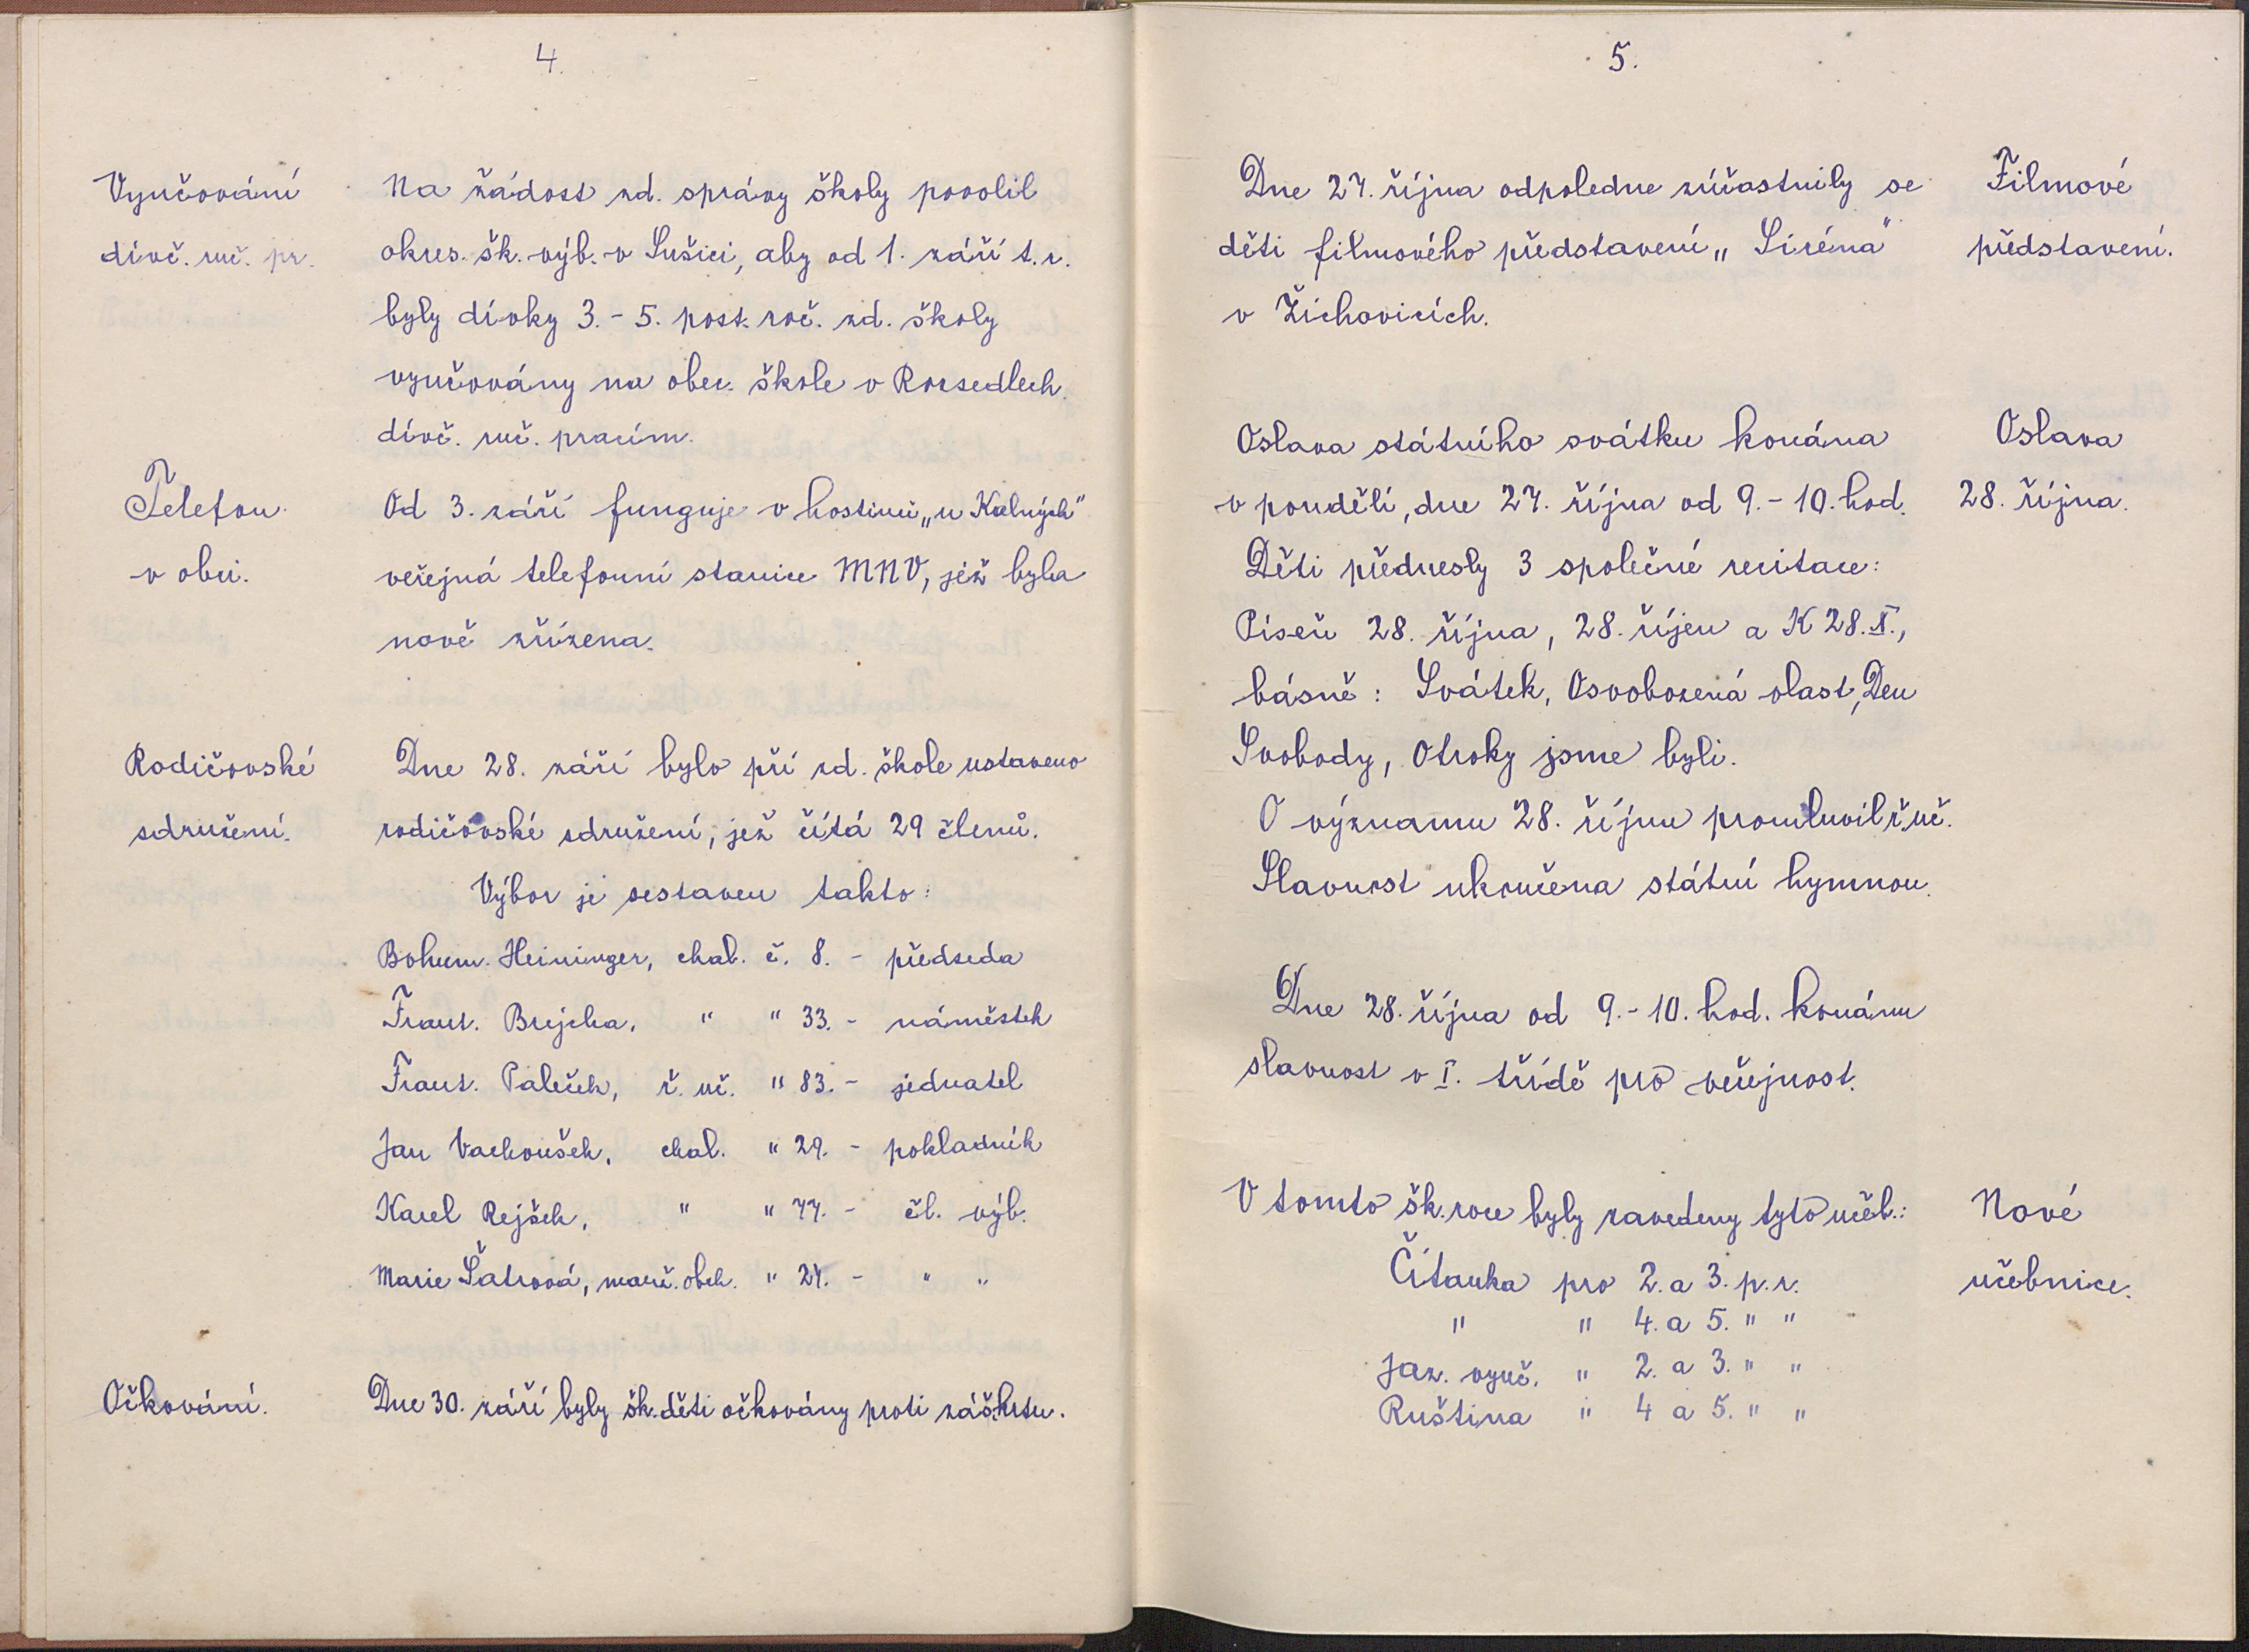 4.
Vyučování
dívč. ruč. pr.
Na žádost zd. správy školy povolil
okres. šk. výb. v Sušici, aby od 1. září t. r.
byly dívky 3. - 5. post. roč. zd. školy
vyučovány na obec. škole v Rozsedlech
dívč. ruč. pracím.
Telefon
v obci.
Od 3. září funguje v hostinci „u Kalných"
veřejná telefonní stanice MNV, jež byla
nově zřízena.
Rodičovské
sdružení.
Dne 28. září bylo při zd. škole ustaveno
rodičovské sdružení, jež čítá 29 členů.
Výbor je sestaven takto:
Bohum. Heininger, chal. č. 8. - předseda
Frant. Brejcha, " " 33. - náměstek
Frant. Paleček, ř. uč. " 83. - jednatel
Jan Vachoušek, chal. " 29. - pokladník
Karel Rejšek, " " 77. - čl. výb.
Marie Šatrová, manž. obch. " 27. - " "
Očkování.
Dne 30. září byly šk. děti očkovány proti záškrtu.
5.
Dne 27. října odpoledne zúčastnily se
děti filmového představení „Siréna"
v Žichovicích.
Filmové
představení.
Oslava státního svátku konána
v pondělí, dne 27. října od 9. - 10. hod.
Děti přednesly 3 společné recitace:
Píseň 28. října, 28. říjen a K 28. X.,
básně: Svátek, Osvobozená vlast, Den
Svobody, Otroky jsme byli.
O významu 28. říjnu promluvil ř. uč.
Slavnost ukončena státní hymnou.
Oslava
28. října.
Dne 28. října od 9. - 10. hod. konánu
slavnost v I. třídě pro veřejnost.
V tomto šk. roce byly zavedeny tyto učeb.:
Čítanka pro 2. a 3. p. r.
" " 4. a 5. " "
Jaz. vyuč. " 2. a 3. " "
Ruština " 4 a 5. " "
Nové
učebnice.